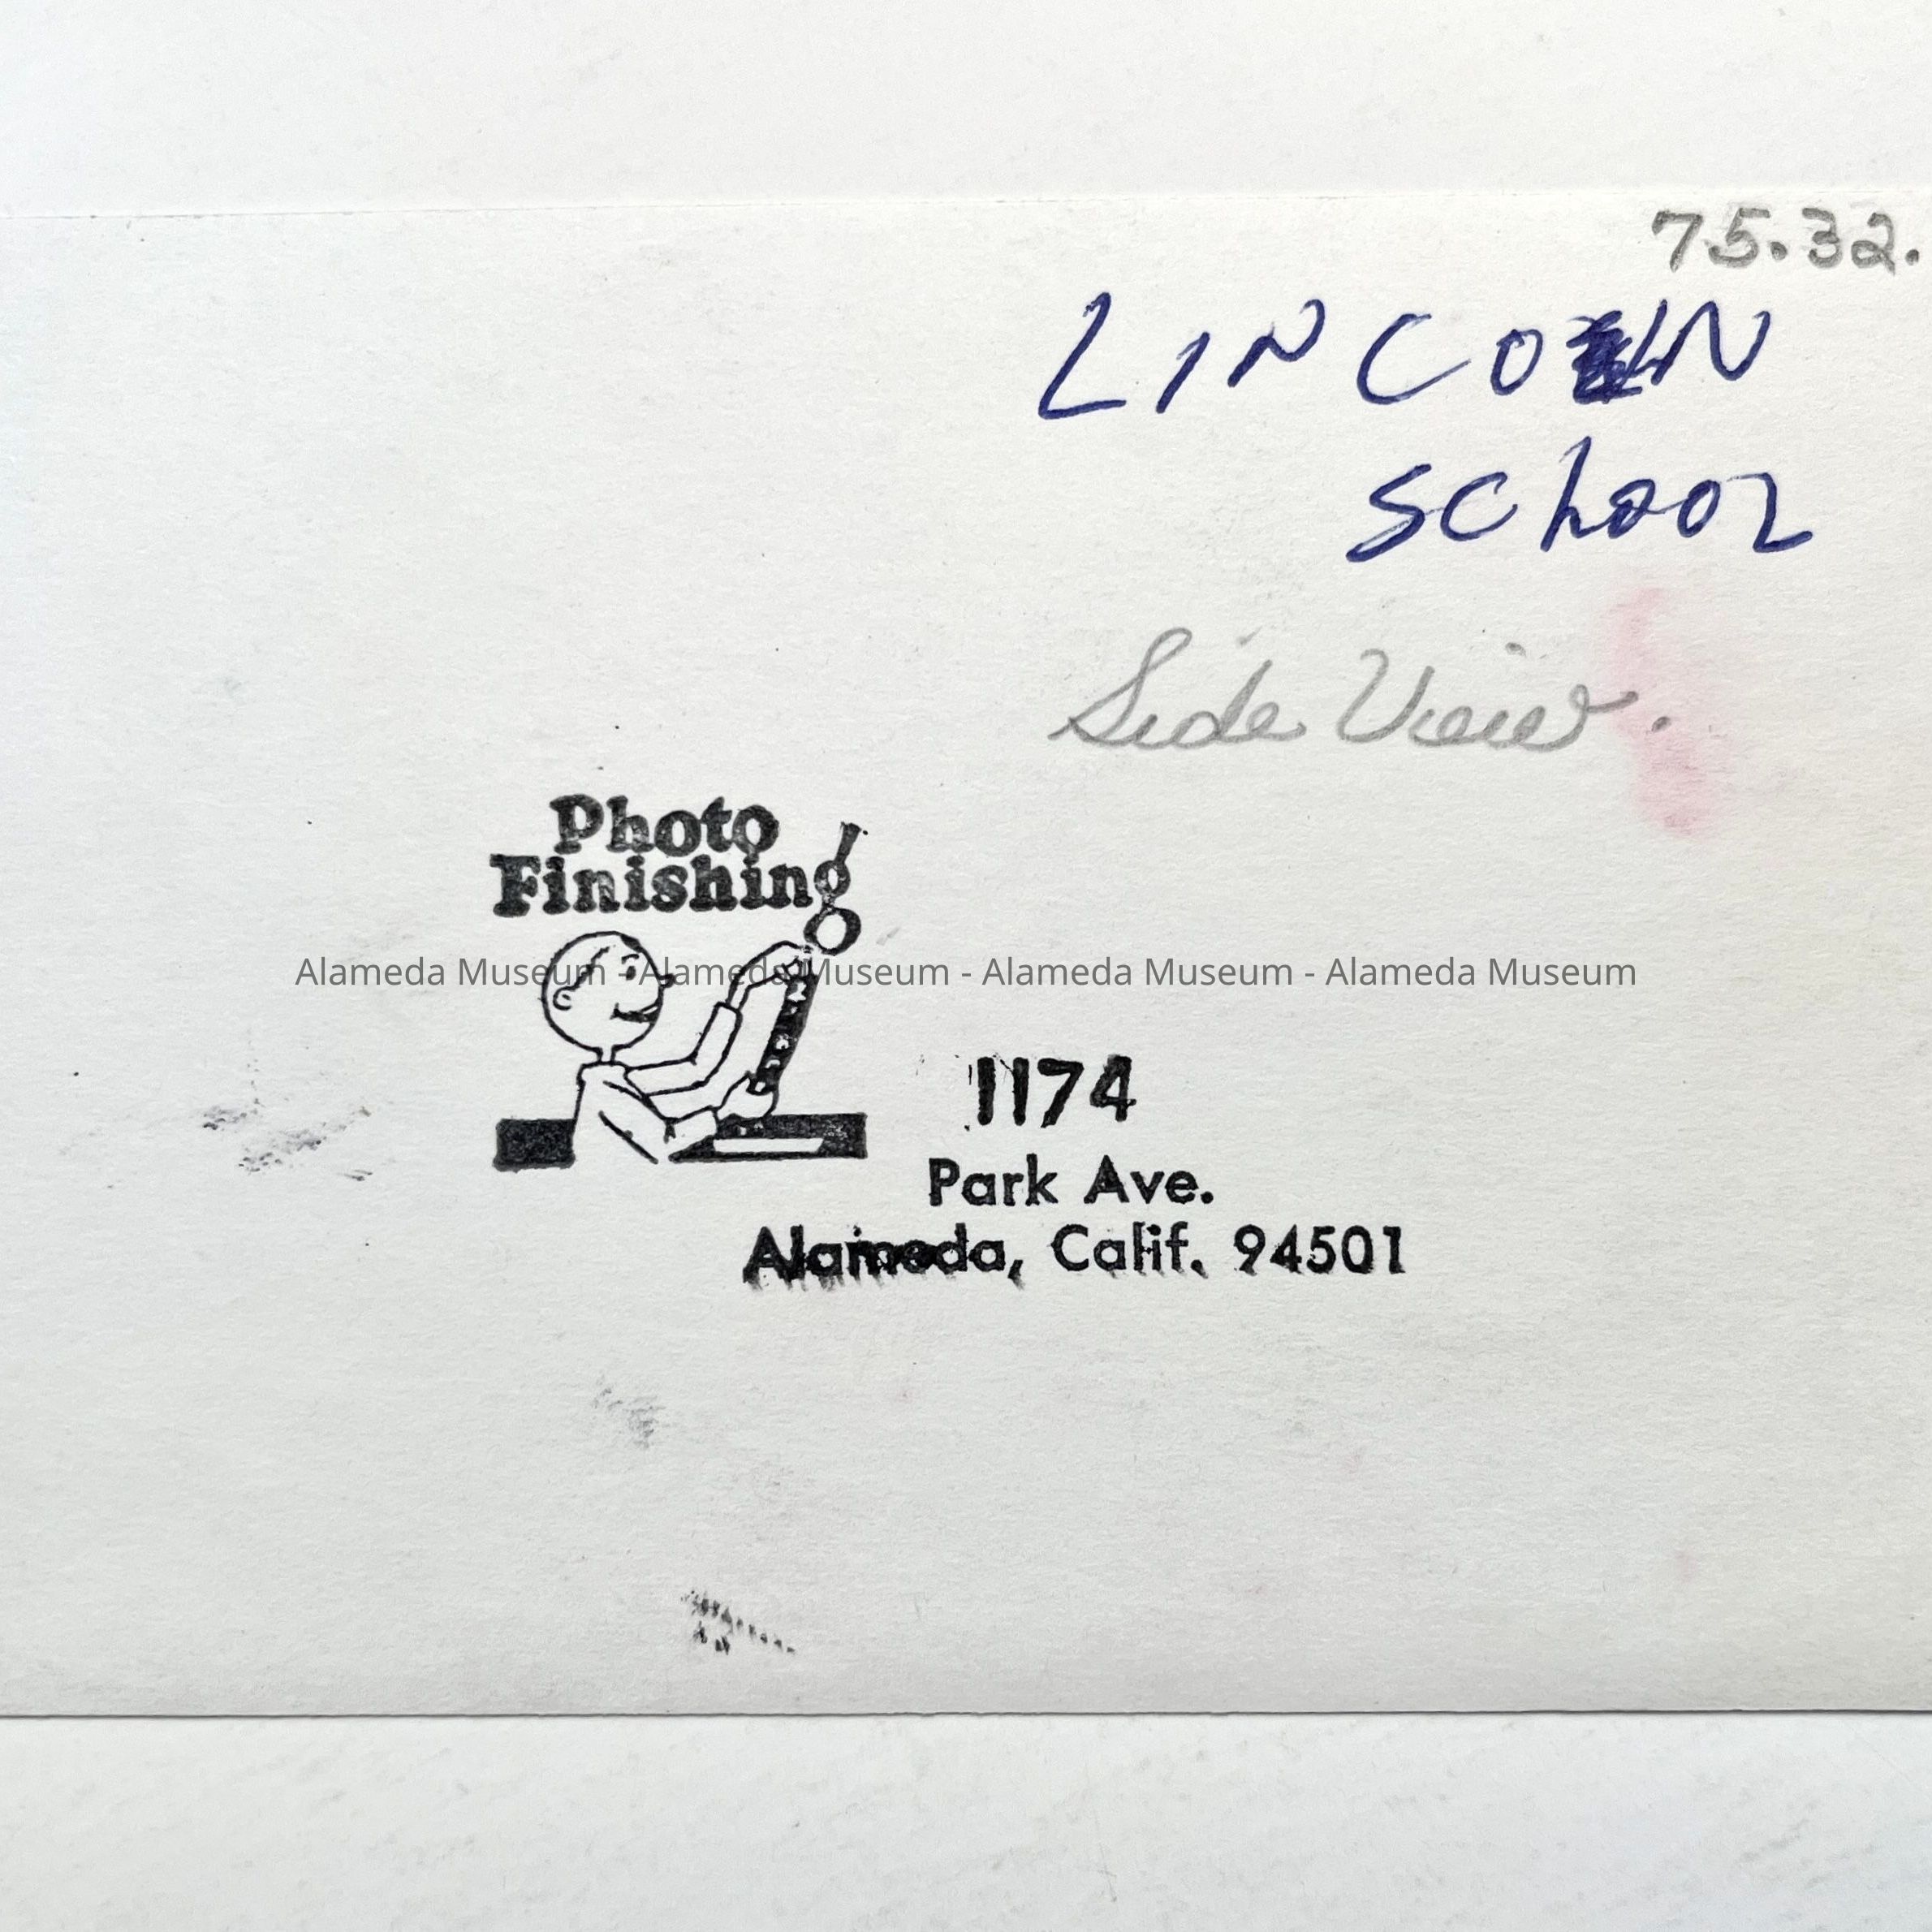 75.32.
LINCOLN
SchooL
Side View.
Photo
Finishing
Alameda Museum - Alameda Museum - Alameda Museum - Alameda Museum
1174
Park Ave.
Alameda, Calif. 94501